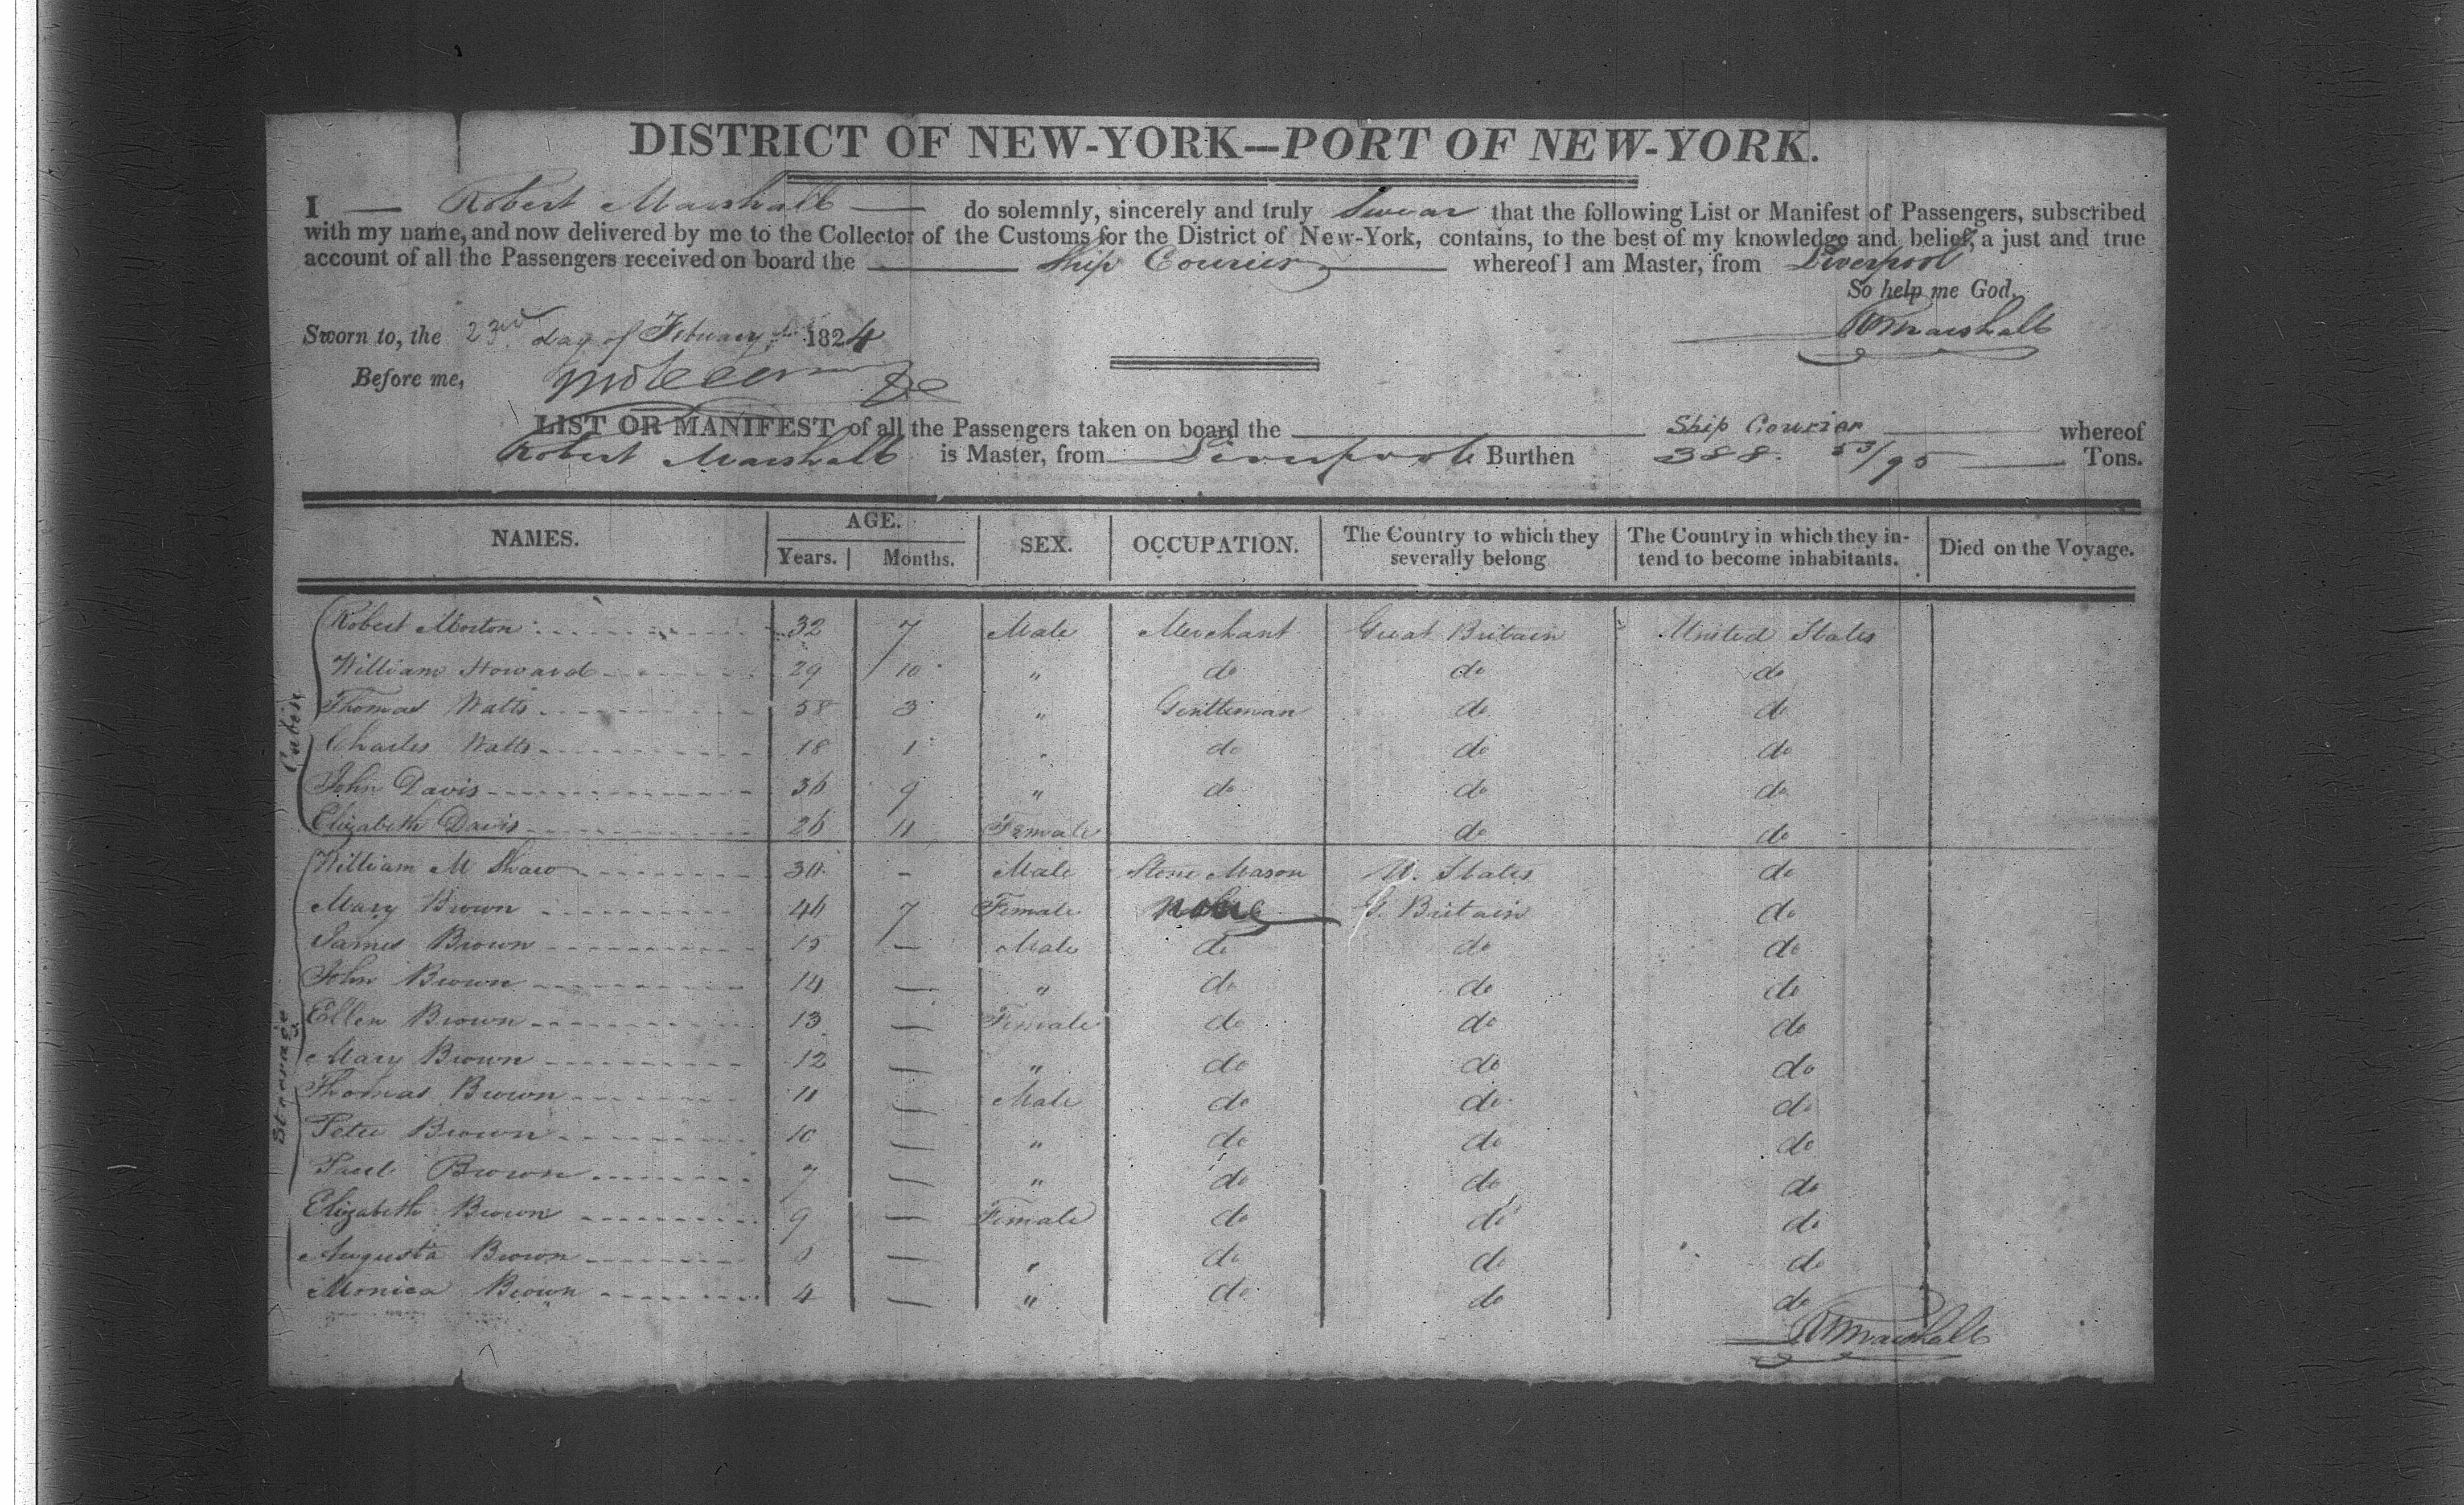 DISTRICT OF NEW-YORK—PORT OF NEW-YORK.
I — Robert Marshall — do solemnly, sincerely and truly Swear that the following List or Manifest of Passengers, subscribed
with my name, and now delivered by me to the Collector of the Customs for the District of New-York, contains, to the best of my knowledge and belief, a just and true
account of all the Passengers received on board the Ship Courier whereof I am Master, from Liverpool
So help me God.
R Marshall
Sworn to, the 23rd day of Febuary 1824
Before me,
LIST OR MANIFEST of all the Passengers taken on board the Ship Courier whereof
Robert Marshall is Master, from Liverpool Burthen 388. 53/95 Tons.
NAMES. AGE. Years. Months. SEX. OCCUPATION. The Country to which they severally belong The Country in which they intend to become inhabitants. Died on the Voyage.
Cabin
Robert Morton 32 7 Male Merchant Great Britain United States
William Howard 29 10 " do do do
Thomas Watts 58 3 " Gentleman do do
Charles Watts 18 1 " do do do
John Davis 36 9 " do do do
Elizabeth Davis 26 11 Female do do
Steerage
William M Shaw 30 - Male Stone Mason U. States do
Mary Brown 46 7 Female none G. Britain do
James Brown 15 — Male do do do
John Brown 14 — " do do do
Ellen Brown 13 — Female do do do
Mary Brown 12 — " do do do
Thomas Brown 11 — Male do do do
Peter Brown 10 — " do do do
Paul Brown 7 — " do do do
Elizabeth Brown 9 — Female do do do
Augusta Brown — " do do do
Monica Brown 4 — " do do do
R Marshall